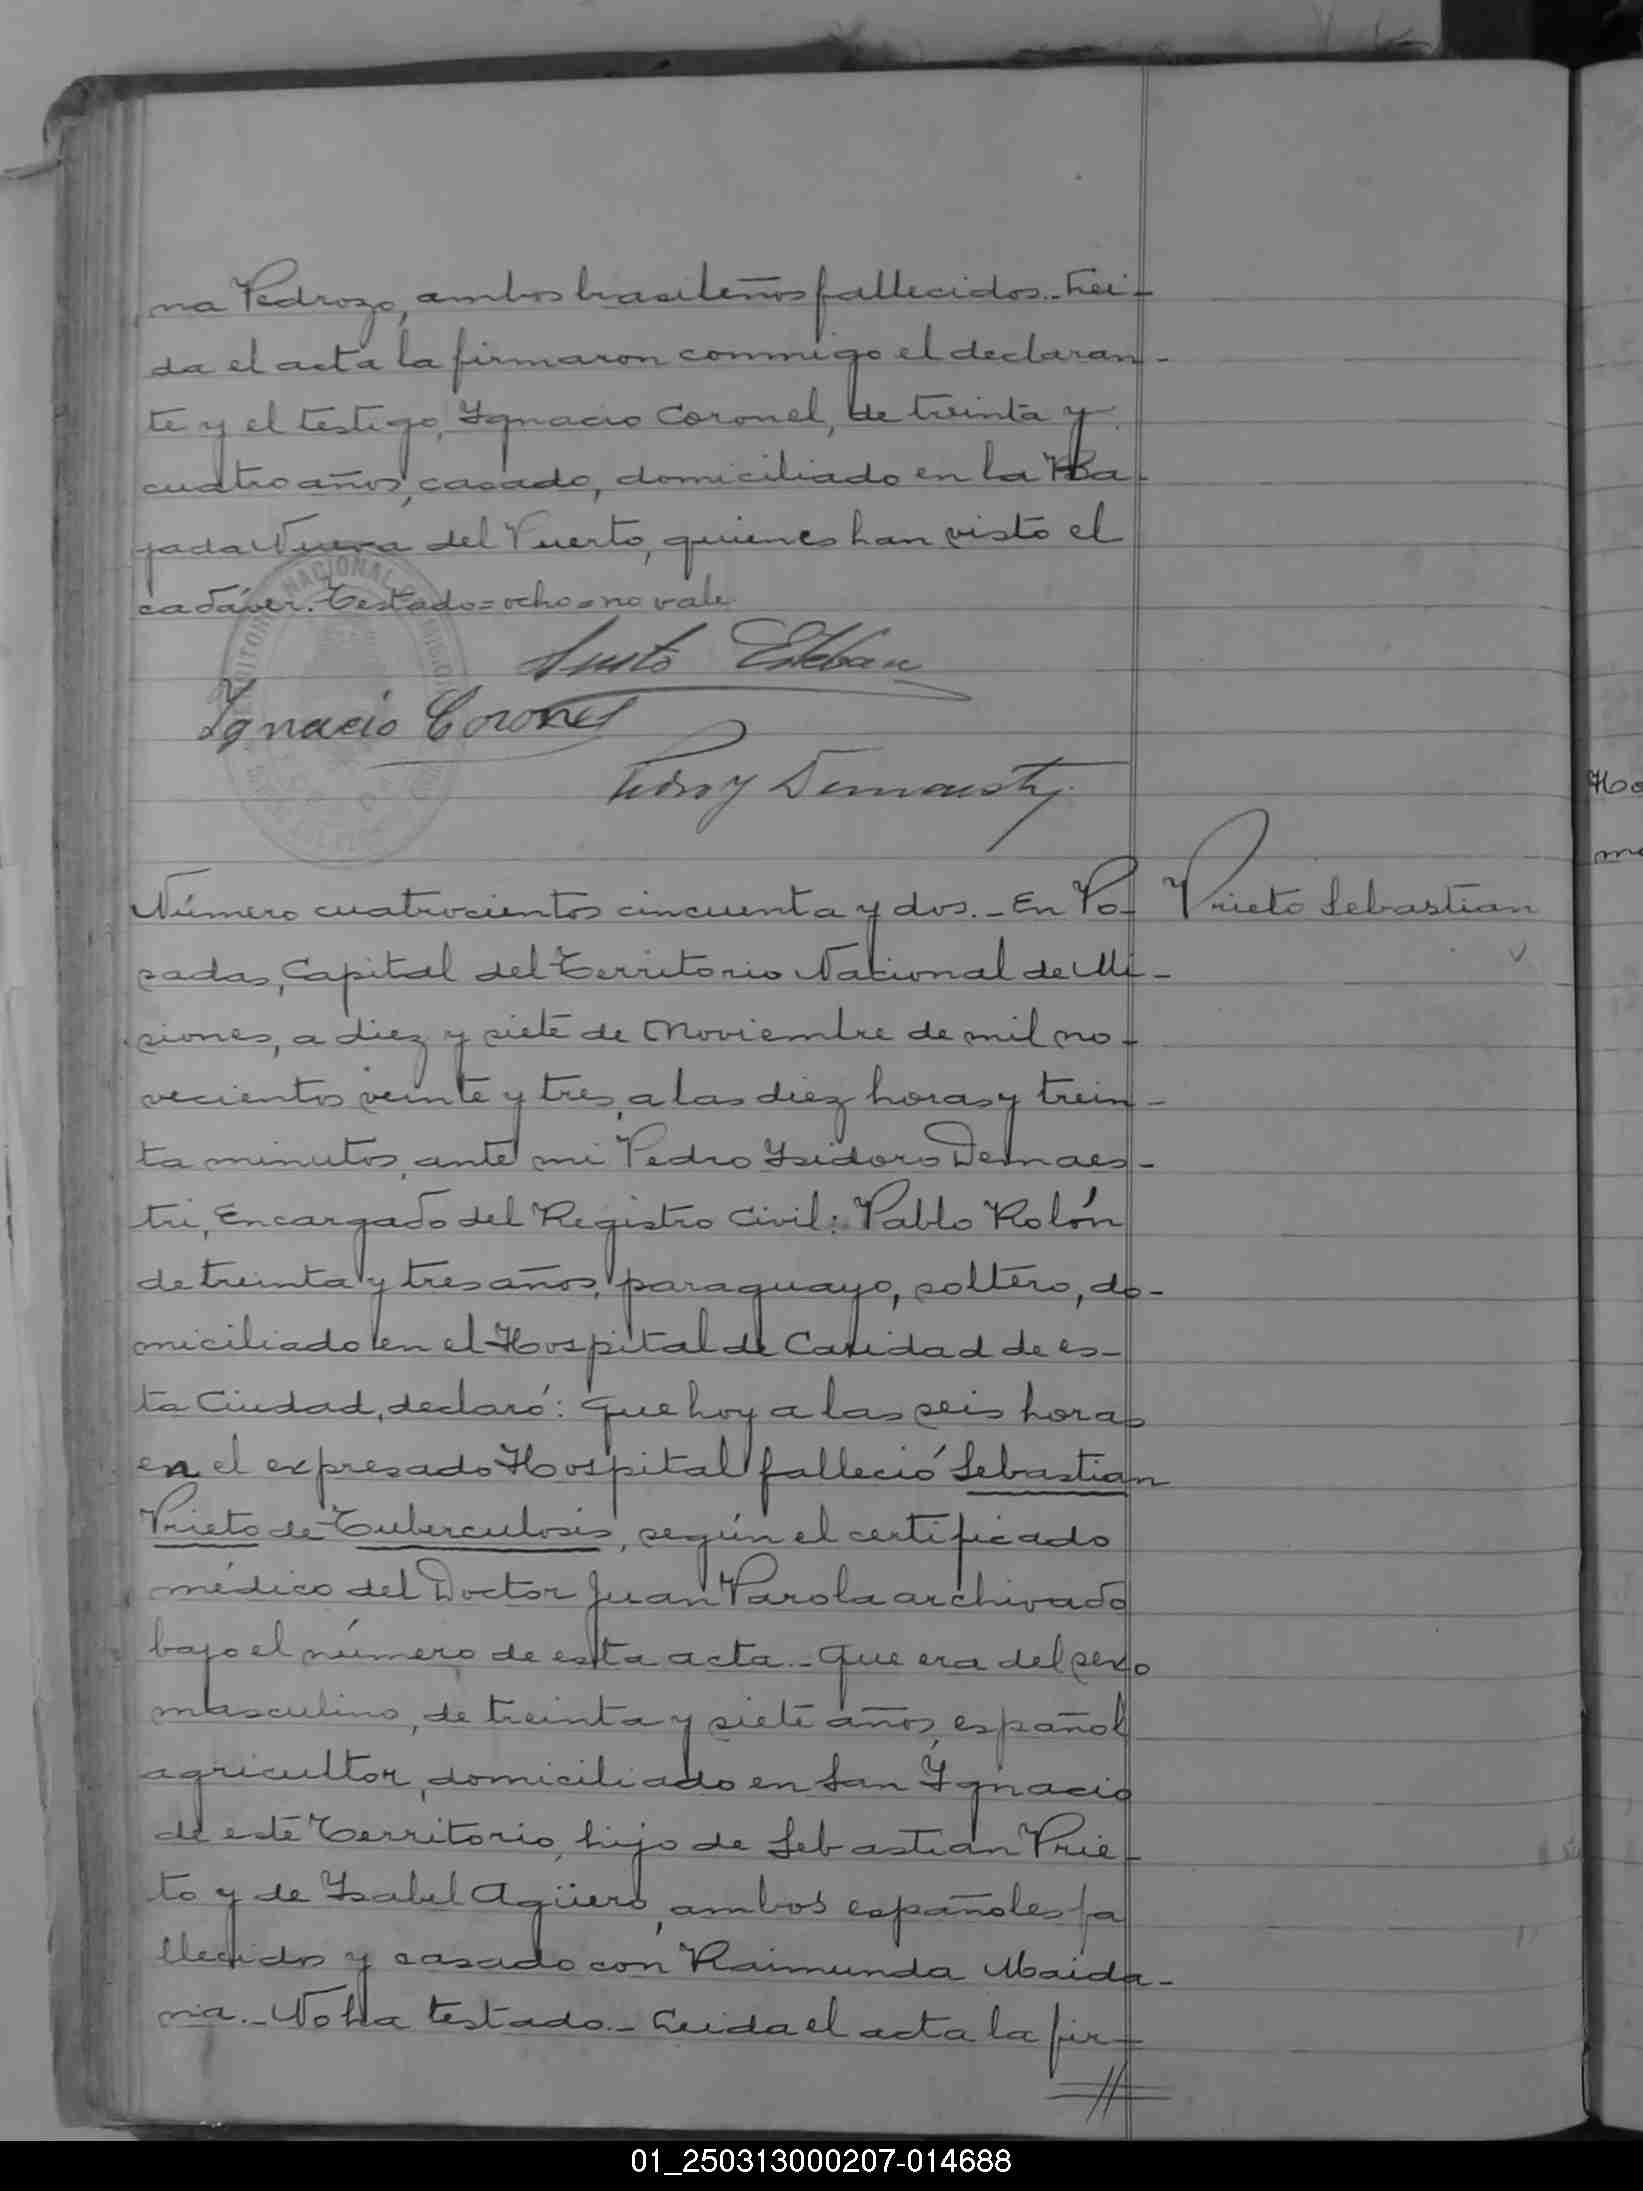 na Pedrozo, ambos brasileños fallecidos.- Leí-
da el acta la firmaron conmigo el declaran-
te y el testigo, Ygnacio Coronel, de treinta y
cuatro años, casado, domiciliado en la Ba-
jada Nueva del Puerto, quienes han visto el
cadáver. Testado=ocho=no vale.
Justo Esteban
Ignacio Coronel
Pedro Y Demaestri
Número cuatrocientos cincuenta y dos.- En Po-
Prieto Sebastian
sadas, Capital del Territorio Nacional de Mi-
siones, a diez y siete de Noviembre de mil no-
vecientos veinte y tres, a las diez horas y trein-
ta minutos, ante mi Pedro Ysidoro Demaes-
tri, Encargado del Registro Civil: Pablo Rolón
de treinta y tres años, paraguayo, soltero, do-
miciliado en el Hospital de Caridad de es-
ta Ciudad, declaró: Que hoy a las seis horas
en el expresado Hospital falleció Sebastian
Prieto de Tuberculosis, según el certificado
médico del Doctor Juan Parola archivado
bajo el número de esta acta.- Que era del sexo
masculino, de treinta y siete años, español
agricultor, domiciliado en San Ygnacio
de este Territorio, hijo de Sebastian Prie-
to y de Ysabel Agüero, ambos españoles fa
llecidos y casado con Raimunda Maida-
na.- No ha testado.- Leida el acta la fir-
Ho
me
01_250313000207-014688